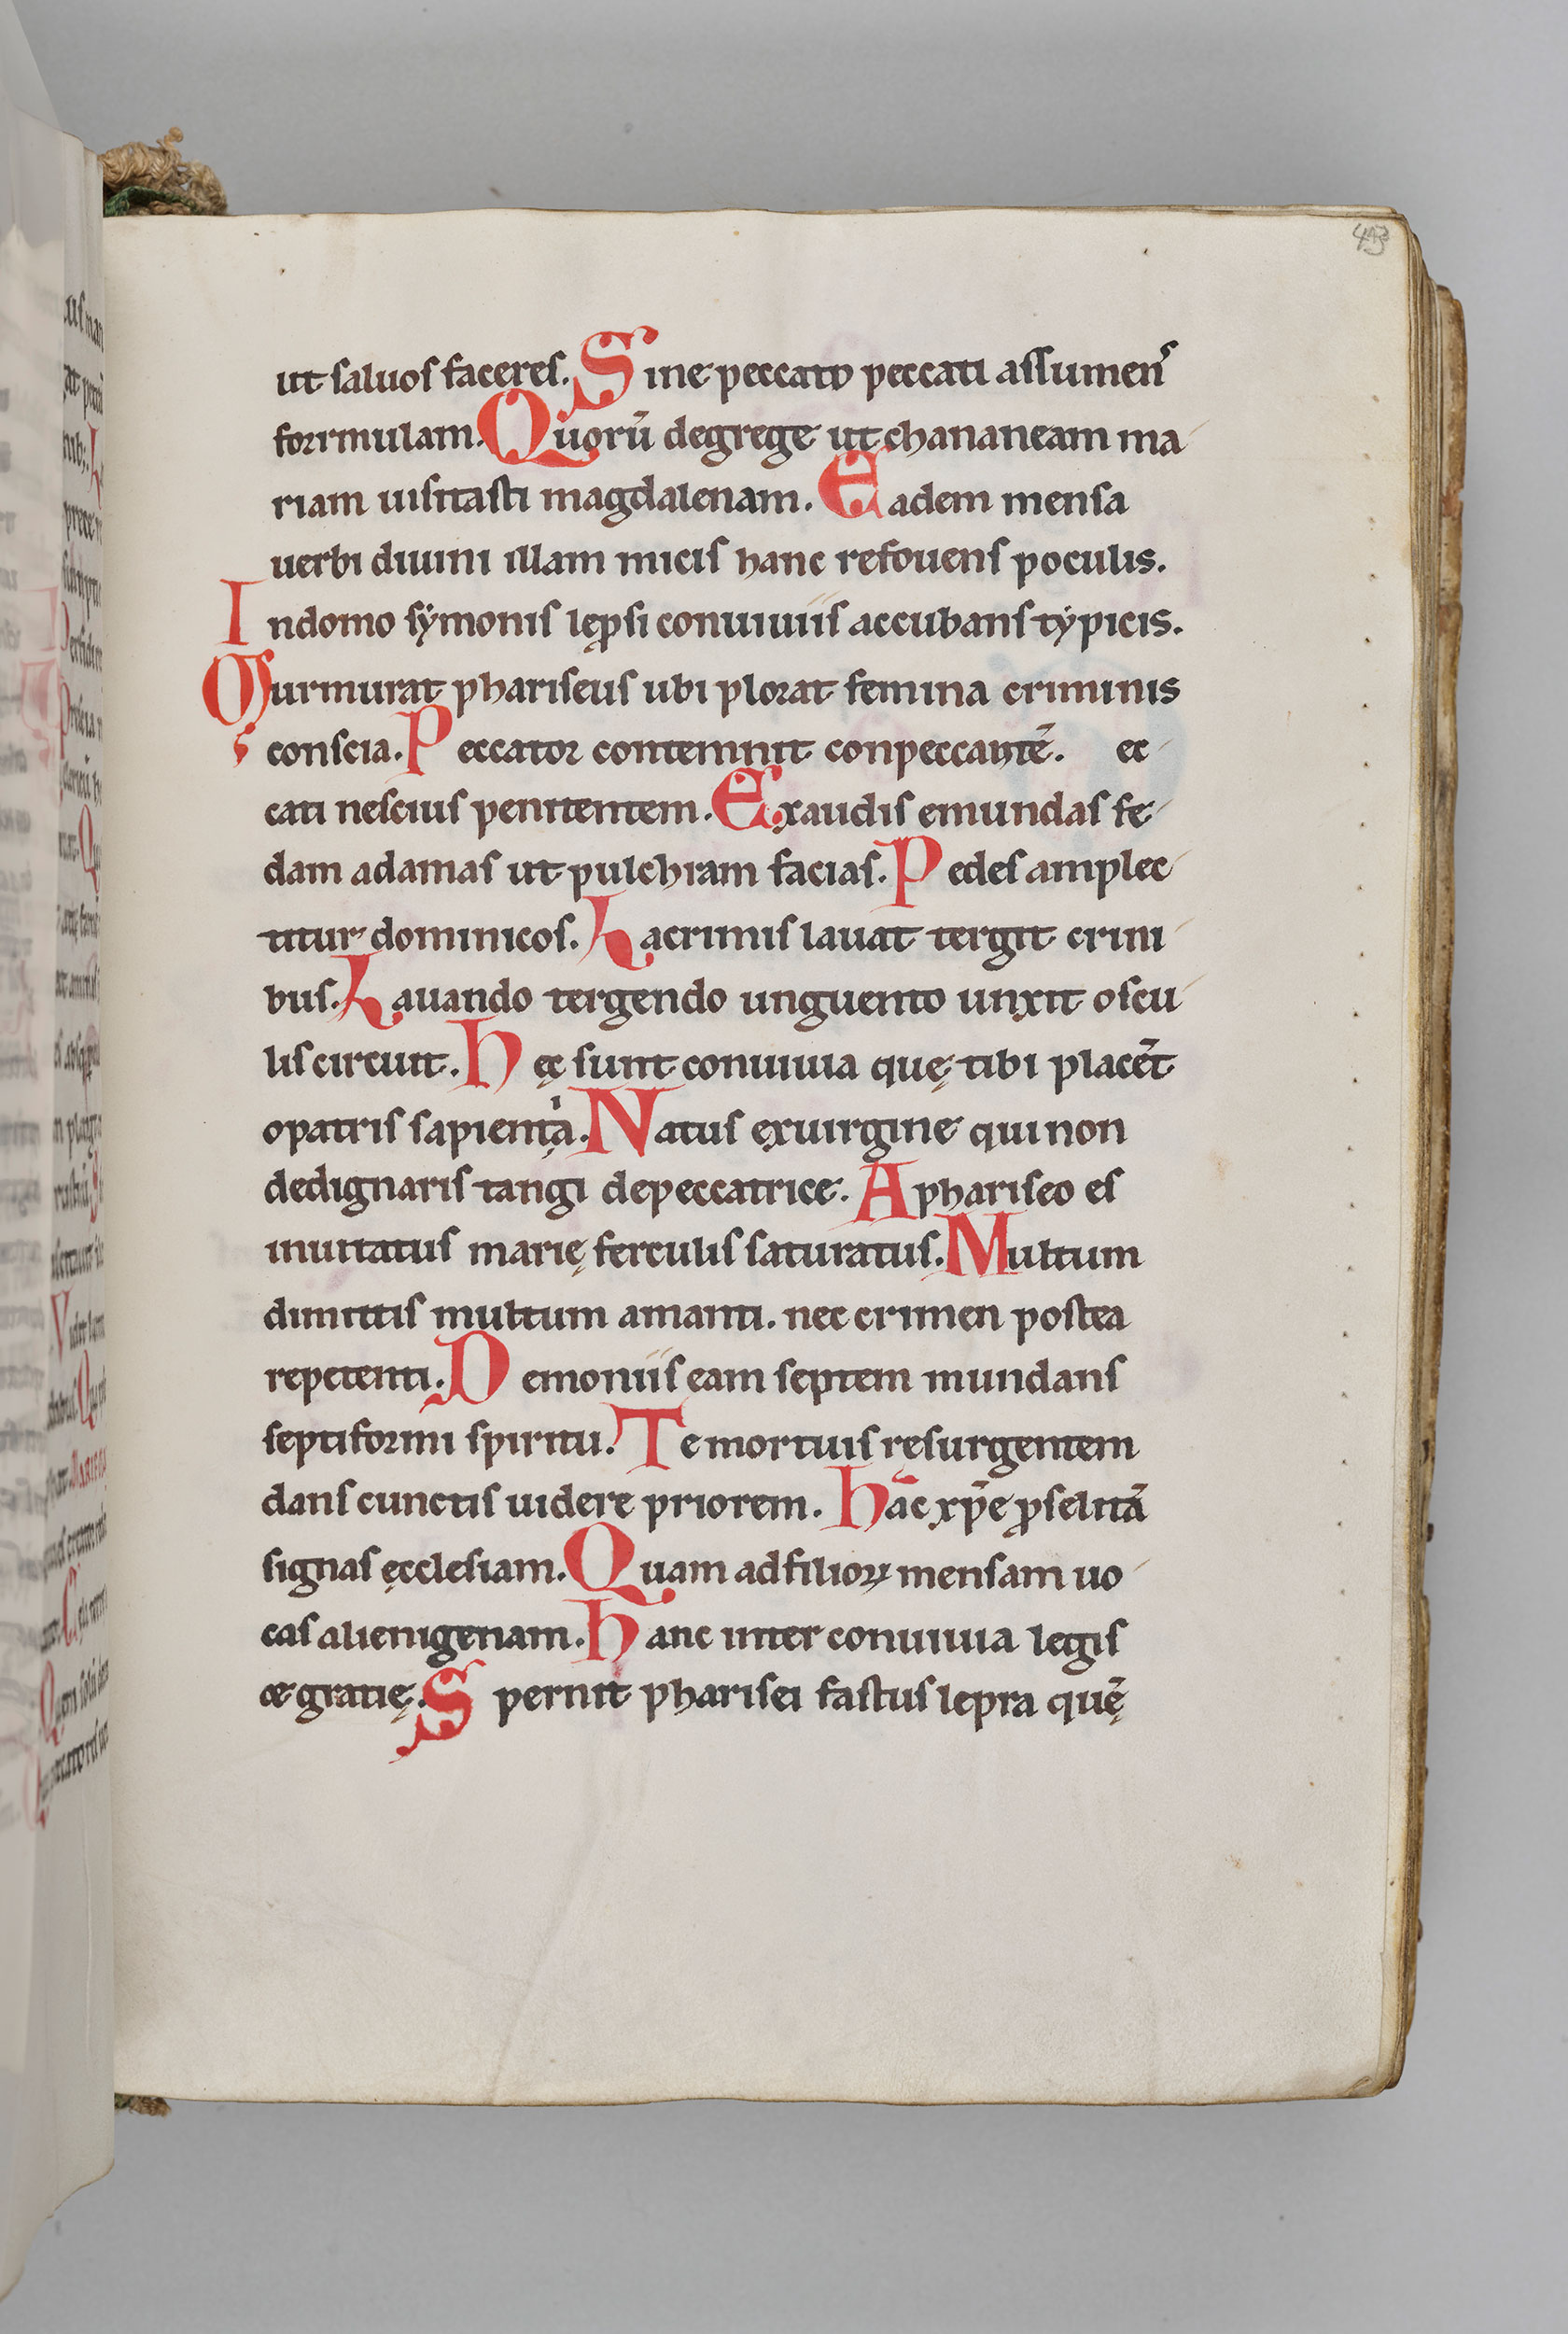 43
ut saluos faceres. Sine peccato peccati assumens
formulam. Quorū degrege ut chananeam ma
riam uisitasti magdalenam. Eadem mensa
uerbi diuini illam micis hanc refouens poculis.
Indomo sẏmonis leꝓsi conuiuiis accubans tẏpicis.
Murmurat phariseus ubi plorat femina criminis
conscia. Peccator contemnit conpeccantē. ec
cati nescius penitentem. Exaudis emundas fe
dam adamas ut pulchram facias. Pedes amplec
titur dominicos. Lacrimis lauat tergit crini
bus. Lauando tergendo unguento unxit oscu
lis circuit. Hęc sunt conuiuia quę tibi placēt
opatris sapientia. Natus exuirgine qui non
dedignaris tangi depeccatrice. A phariseo es
inuitatus marię ferculis saturatus. Multum
dimittis multum amanti. nec crimen postea
repetenti. Demoniis eam septem mundans
septiformi spiritu. Te mortuis resurgentem
dans cunctis uidere priorem. Hāc xp̄e ꝓselitā
signas ęcclesiam. Quam adfilioꝝ mensam uo
cas alienigenam. Hanc inter conuiuia legis
& gratię. Spernit pharisei fastus lepra quę